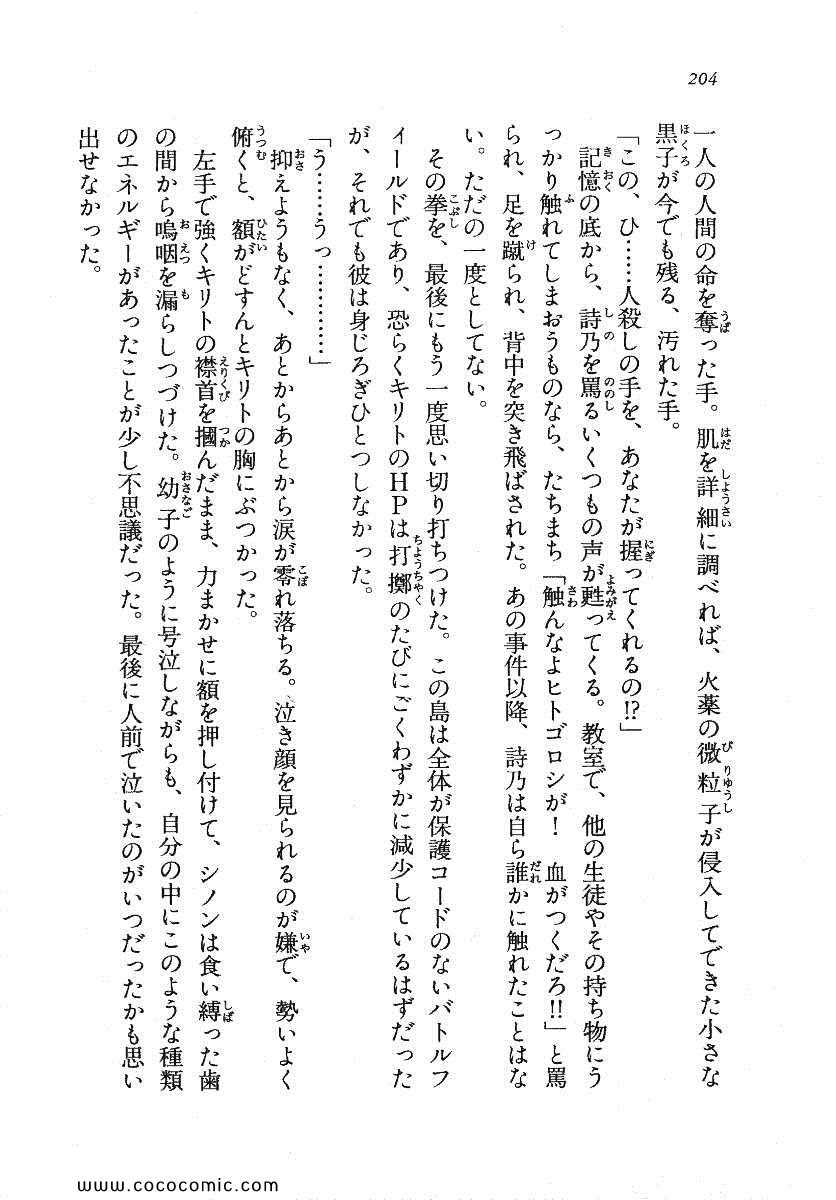 204
一人の人間の命を奪った手。肌を詳細に調べれば、火薬の微粒子が侵入してできた小さな
黒子が今でも残る、汚れた手。
「この、ひ……人殺しの手を、あなたが握ってくれるの!?」
記憶の底から、詩乃を罵るいくつもの声が甦ってくる。教室で、他の生徒やその持ち物にう
っかり触れてしまおうものなら、たちまち「触んなよヒトゴロシが！　血がつくだろ!!」と罵
られ、足を蹴られ、背中を突き飛ばされた。あの事件以降、詩乃は自ら誰かに触れたことはな
い。ただの一度としてない。
その拳を、最後にもう一度思い切り打ちつけた。この島は全体が保護コードのないバトルフ
ィールドであり、恐らくキリトのＨＰは打擲のたびにごくわずかに減少しているはずだった
が、それでも彼は身じろぎひとつしなかった。
「う……うっ…………」
抑えようもなく、あとからあとから涙が零れ落ちる。泣き顔を見られるのが嫌で、勢いよく
俯くと、額がどすんとキリトの胸にぶつかった。
左手で強くキリトの襟首を摑んだまま、力まかせに額を押し付けて、シノンは食い縛った歯
の間から嗚咽を漏らしつづけた。幼子のように号泣しながらも、自分の中にこのような種類
のエネルギーがあったことが少し不思議だった。最後に人前で泣いたのがいつだったかも思い
出せなかった。
www.cococomic.com